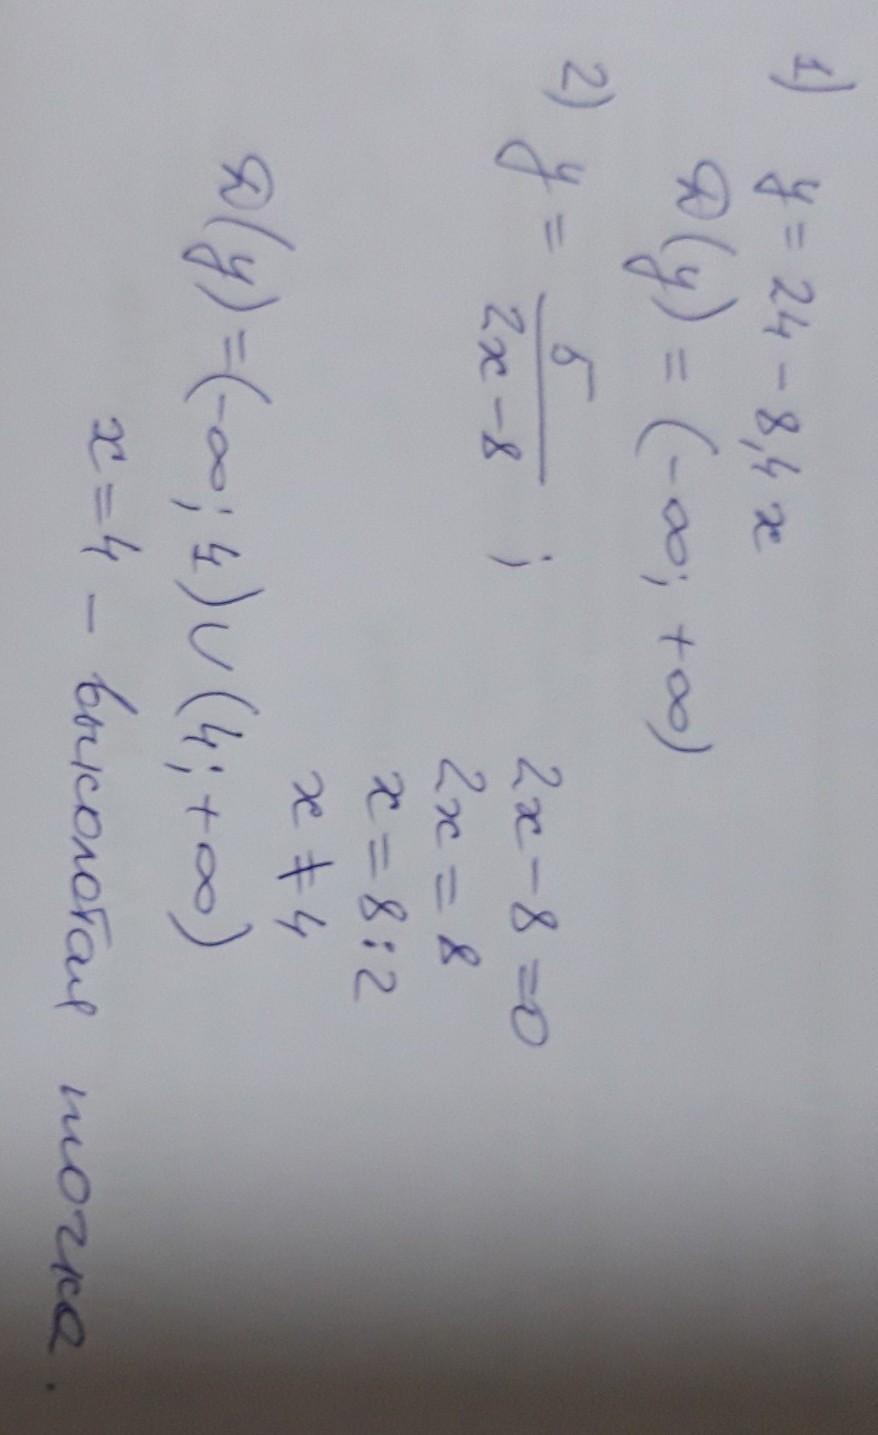 1) y = 24 - 8,4 x
D(y) = (-∞; +∞)
2) y = 5/(2x-8) ;
2x - 8 = 0
2x = 8
x = 8 : 2
x ≠ 4
D(y) = (-∞; 4) ∪ (4; +∞)
x = 4 - выколотая точка.